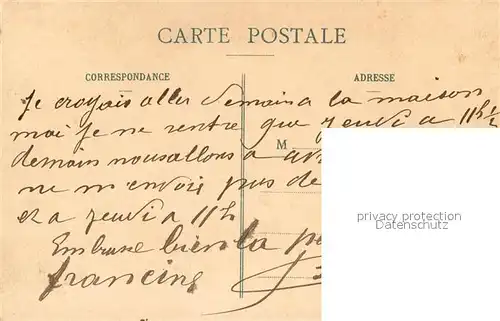 CARTE POSTALE
CORRESPONDANCE
ADRESSE
Je croyais aller demain a la maison
mai je ne rentre que jeudi a 11h½
M
demain nous allons a
ne m'envoie pas de
et a jeudi a 11h
Embrasse bien la
francine
privacy protection
Datenschutz